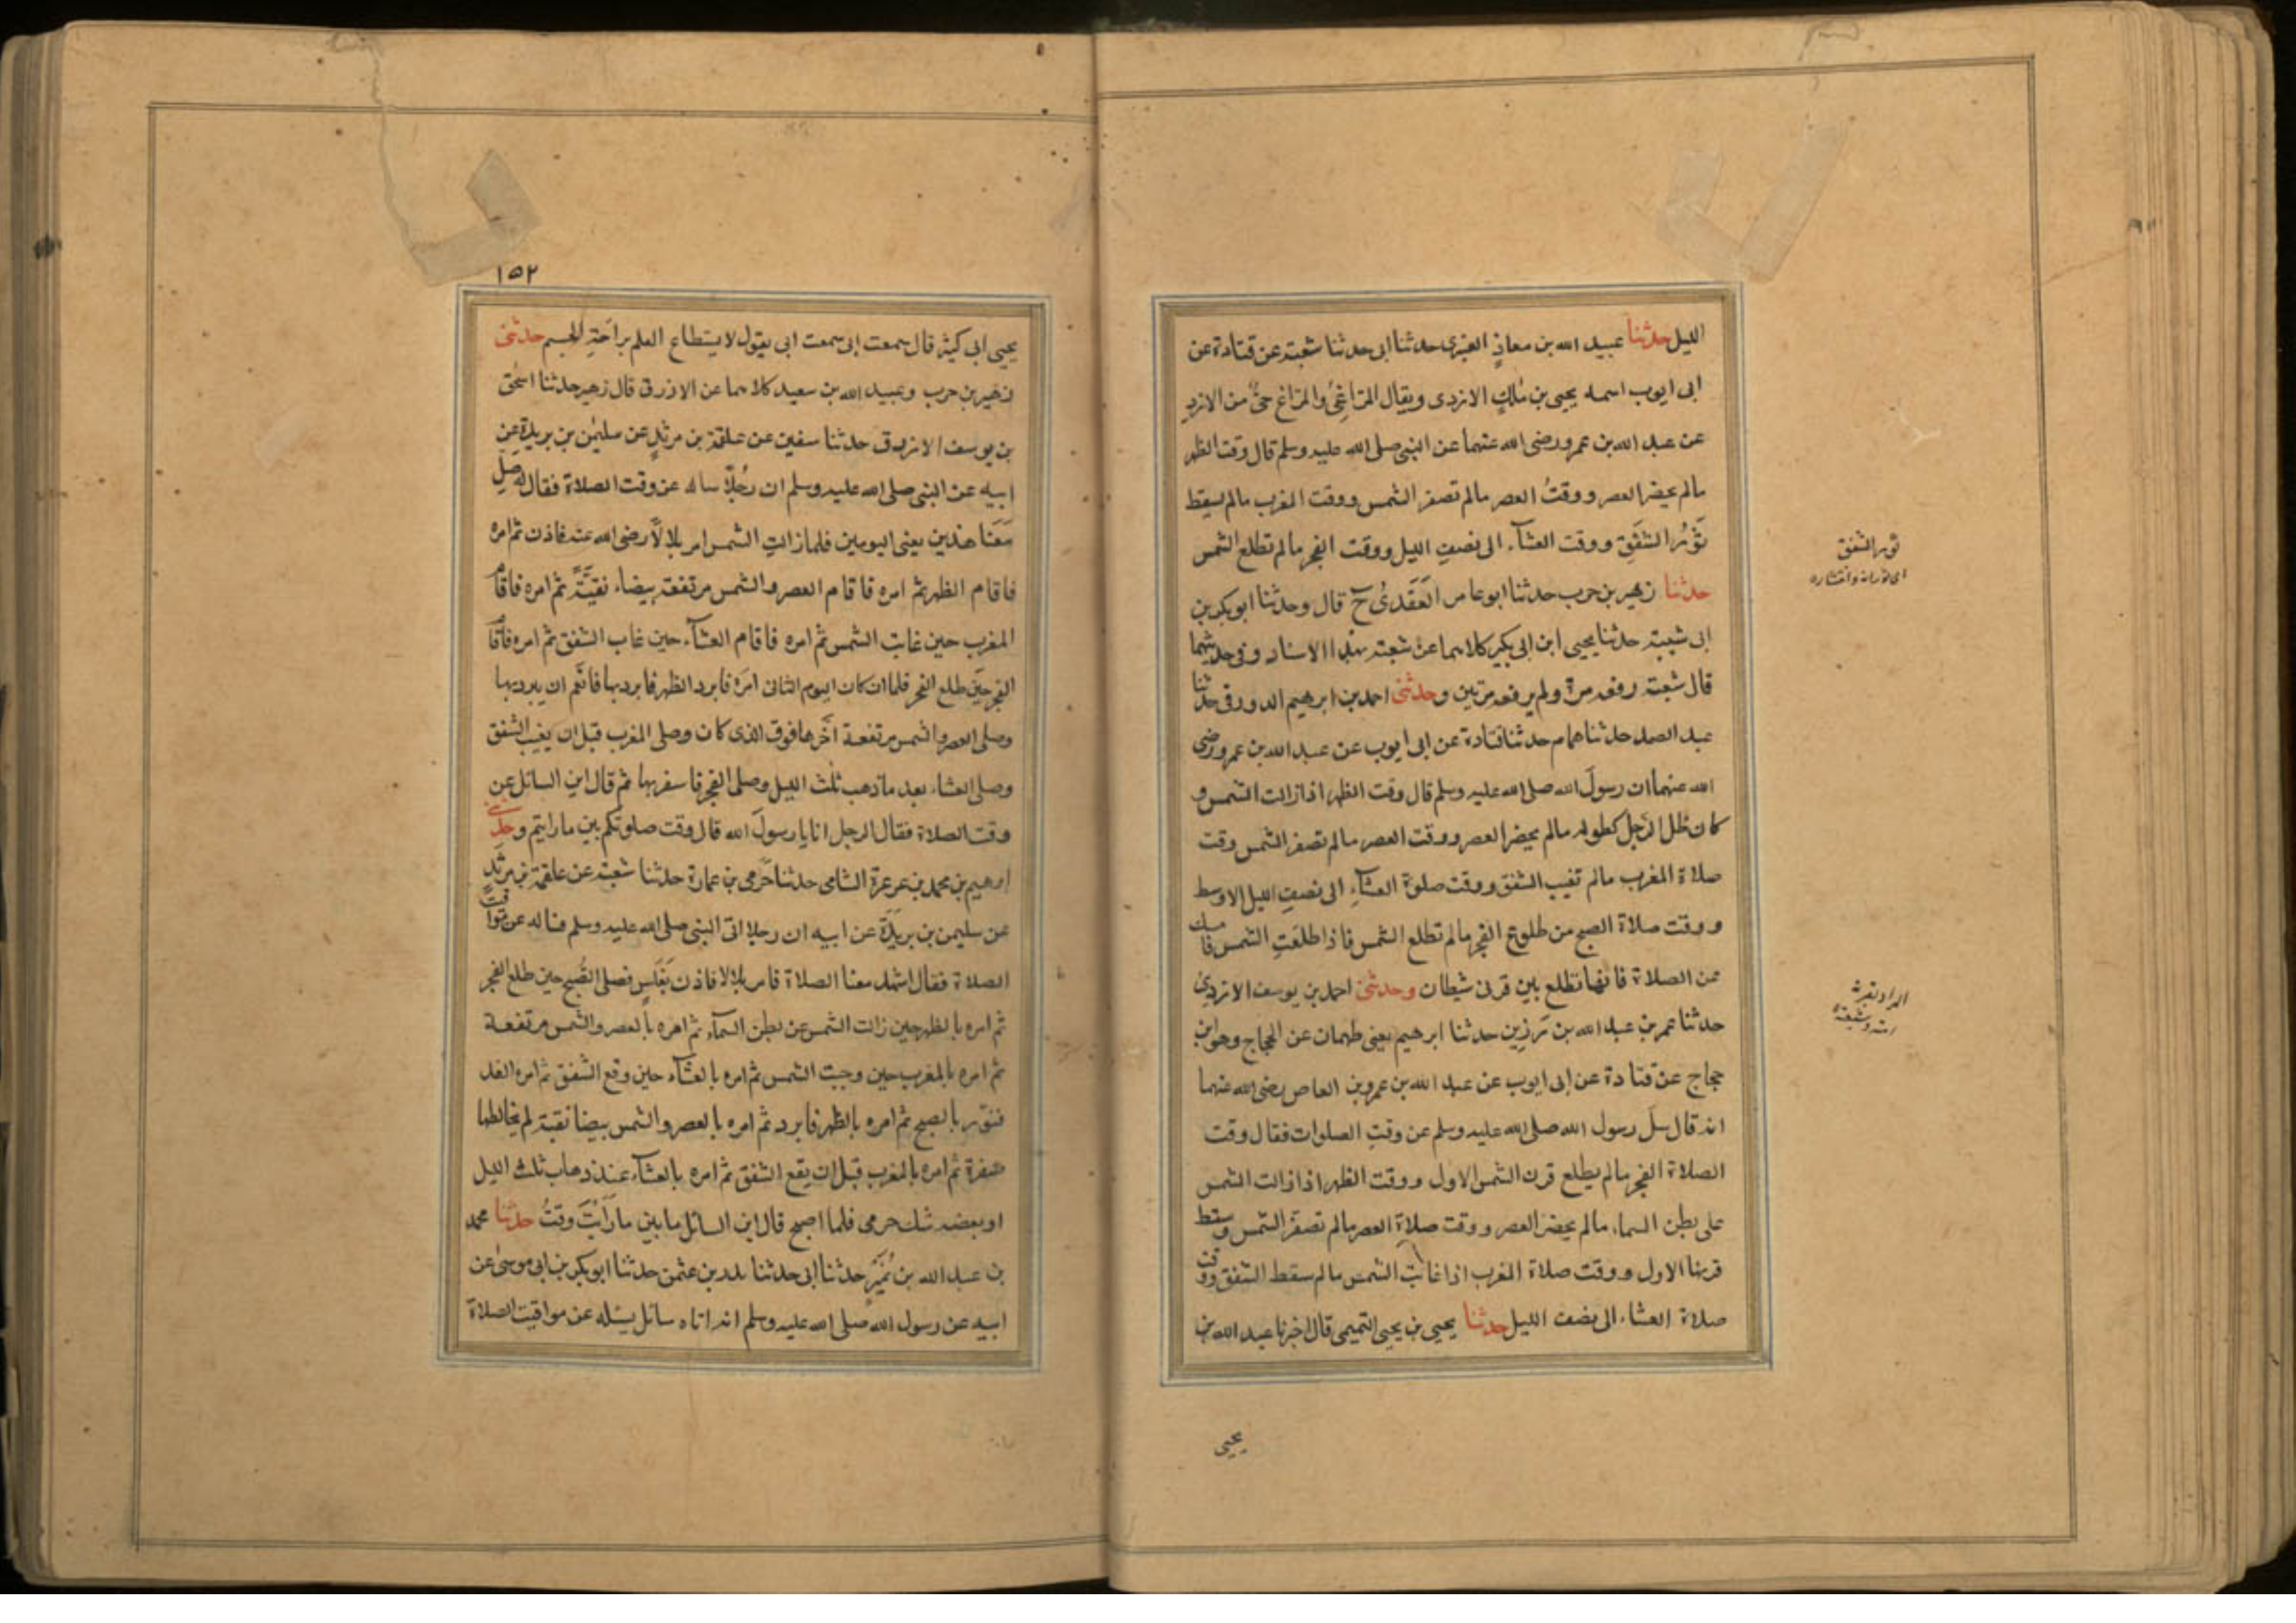 الليل حدثنا عبيد الله بن معاذ العنبرى حدثنا ابى حدثنا شعبة عن قتادة عن
ابى ايوب اسمه يحيى بن مٰلكٍ الازدى ويقال المَرَاغِىُّ والمَرَاغ حىٌّ من الازدِ
عن عبد الله بن عمرو رضى الله عنهما عن النبى صلى الله عليه وسلم قال وقت الظهر
مالم يحضر العصر ووقتُ العصر مالم تصفر الشمس ووقت المغرب مالم يسقط
ثَوْرُ الشفَقِ ووقت العشآء الى نصفِ الليل ووقت الفجر مالم تطلع الشمس
حدثنا زهير بن حرب حدثنا ابو عامر العَقَدىُّ ح قال وحدثنا ابو بكر بن
ابى شيبة حدثنا يحيى ابن ابى بكير كلاهما عن شعبة بهذا الاسناد وفى حديثهما
قال شعبة رفعه مرة ولم يرفعه مرتين وحدثنى احمد بن ابرهيم الدورقى حدثنا
عبد الصمد حدثنا همام حدثنا قتادة عن ابى ايوب عن عبد الله بن عمرو رضى
الله عنهما ان رسولَ الله صلى الله عليه وسلم قال وقت الظهر اذا زالت الشمس و
كان ظل الرجل كطوله مالم يحضر العصر ووقت العصر مالم تصفر الشمس وقت
صلاة المغرب مالم تغيب الشفق ووقت صلوة العشآءِ الى نصفِ الليل الاوسط
ووقت صلاة الصبح من طلوع الفجر مالم تطلع الشمس فاذا طلعَتِ الشمس فامسك
عن الصلاة فانها تطلع بين قرنى شيطان وحدثنى احمد بن يوسف الازدىُّ
حدثنا عمر بن عبد الله بن رَزِين حدثنا ابرهيم يعنى طهمان عن الحجاج وهو ابن
حجاج عن قتادة عن ابى ايوب عن عبد الله بن عمرو بن العاص رضى الله عنهما
انه قال سل رسول الله صلى الله عليه وسلم عن وقتِ الصلوات فقال وقت
الصلاة الفجر مالم يطلع قرن الشمس الاول ووقت الظهر اذا زالت الشمس
على بطن السماء مالم يحضر العصر ووقت صلاة العصر مالم تصفرَّ الشمس وسقط
قرنها الاول ووقت صلاة المغرب اذا غابت الشمس مالم سقط الشفق ووقت
صلاة العشاء الى نصف الليل حدثنا يحيى بن يحيى التميمى قال اخبرنا عبد الله بن
ثور الشفق
اى ثورانه وانتشاره
يحيى
١٥٢
يحيى ابى كثير قال سمعت ابى سمعت ابى يقول لا يستطاع العلم براحَةِ الجسم حدثنى
زهير بن حرب وعبيد الله بن سعيد كلاهما عن الازرق قال زهير حدثنا اسحٰق
بن يوسف الازرق حدثنا سفين عن علقمة بن مرثدٍ عن سليمٰن بن بريدة عن
ابيه عن النبى صلى الله عليه وسلم ان رجُلاً ساله عن وقت الصلاة فقال له صلِّ
مَعَنا هذين يعنى اليومين فلما زالتِ الشمس امر بلالاً رضى الله عنه فاذن ثم امره
فاقام الظهر ثم امره فاقام العصر والشمس مرتفعة بيضاء نقيَّةً ثم امره فاقام
المغرب حين غابت الشمس ثم امره فاقام العشآء حين غاب الشفق ثم امره فاقام
الفجر حين طلع الفجر فلما ان كان اليوم الثانى امرَه فابرد الظهر فابرد بها فانعَم ان يبرد بها
وصلى العصر والشمس مرتفعة اخَّرها فوق الذى كان وصلى المغرب قبل ان يغيب الشفق
وصلى العشاء بعد ماذهب ثلث الليل وصلى الفجر فاسفر بها ثم قال اين السائل عن
وقت الصلاة فقال الرجل انا يا رسولَ الله قال وقت صلوتكم بين ما رايتم وحدثنى
ابرهيم بن محمد بن عرعرة الشامى حدثنا حَرَمى بن عمارة حدثنا شعبة عن علقمة بن مرثدٍ
عن سليمن بن بريدَةَ عن ابيه ان رجلا اتى النبى صلى الله عليه وسلم فساله عن مواقيت
الصلاة فقال اشهد معنا الصلاة فامر بلالا فاذن بَغَلَسٍ فصلى الصُّبح حين طلع الفجر
ثم امره بالظهر حين زالت الشمس عن بطن السمآء ثم امره بالعصر والشمس مرتفعة
ثم امره بالمغرب حين وجبت الشمس ثم امره بالعشآء حين وقع الشفق ثم امره الغد
فنوّر بالصبح ثم امره بالظهر فابرد ثم امره بالعصر والشمس بيضا نقية لم يخالطها
صفرة ثم امره بالمغرب قبل ان يقع الشفق ثم امره بالعشآء عند ذهاب ثلث الليل
او بعضه شك حرمى فلما اصبح قال اين السائل ما بين ما رَاَيْتَ وقتُ حدثنا محمد
بن عبد الله بن نُمَيْر حدثنا ابى حدثنا بدر بن عثمن حدثنا ابو بكر بن ابى موسى عن
ابيه عن رسول الله صلى الله عليه وسلم انه اتاه سائل يسئله عن مواقيت الصلاة